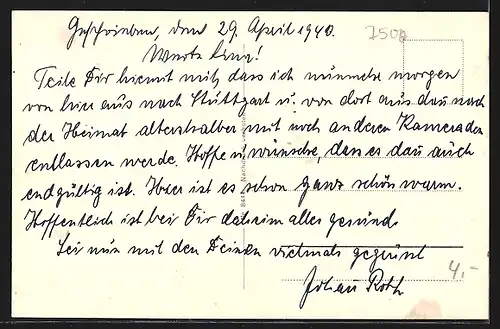 Geschrieben, den 29. April 1940.
7500
Werte Lena!
Teile Dir hiermit mit, dass ich nunmehr morgen
von hier aus nach Stuttgart u. von dort aus dann nach
der Heimat altershalber mit noch anderen Kameraden
entlassen werde. Hoffe u. wünsche, dass es dann auch
endgültig ist. Hier ist es schon ganz schön warm.
Hoffentlich ist bei Dir daheim alles gesund.
Sei nun mit den Deinen vielmals gegrüsst
4,-
Roth